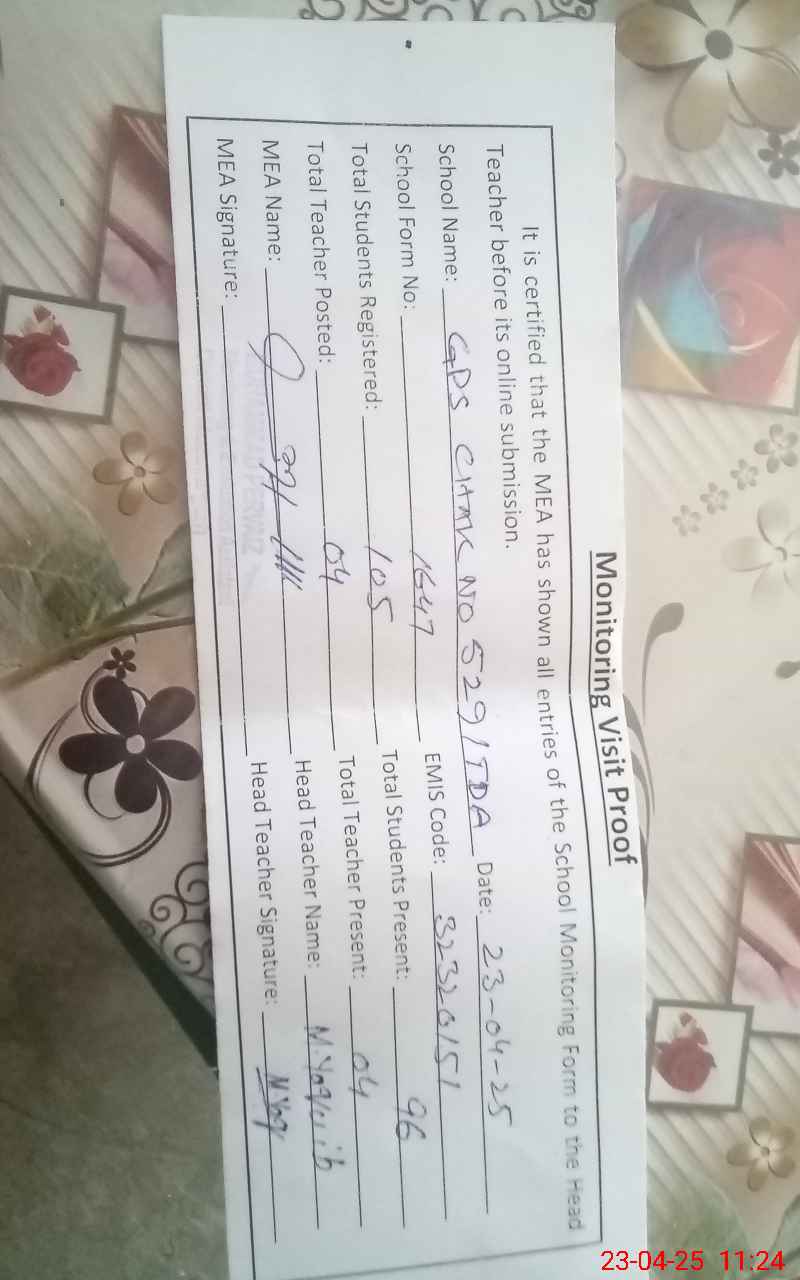 Monitoring Visit Proof
It is certified that the MEA has shown all entries of the School Monitoring Form to the Head
Teacher before its online submission.
School Name: GPS CHAK NO 529/TDA Date: 23-04-25
School Form No: 1647 EMIS Code: 32320151
Total Students Registered: 105 Total Students Present: 96
Total Teacher Posted: 04 Total Teacher Present: 04
MEA Name: Head Teacher Name: M.Yaqoob
MEA Signature: Head Teacher Signature:
PERVAIZ
23-04-25 11:24